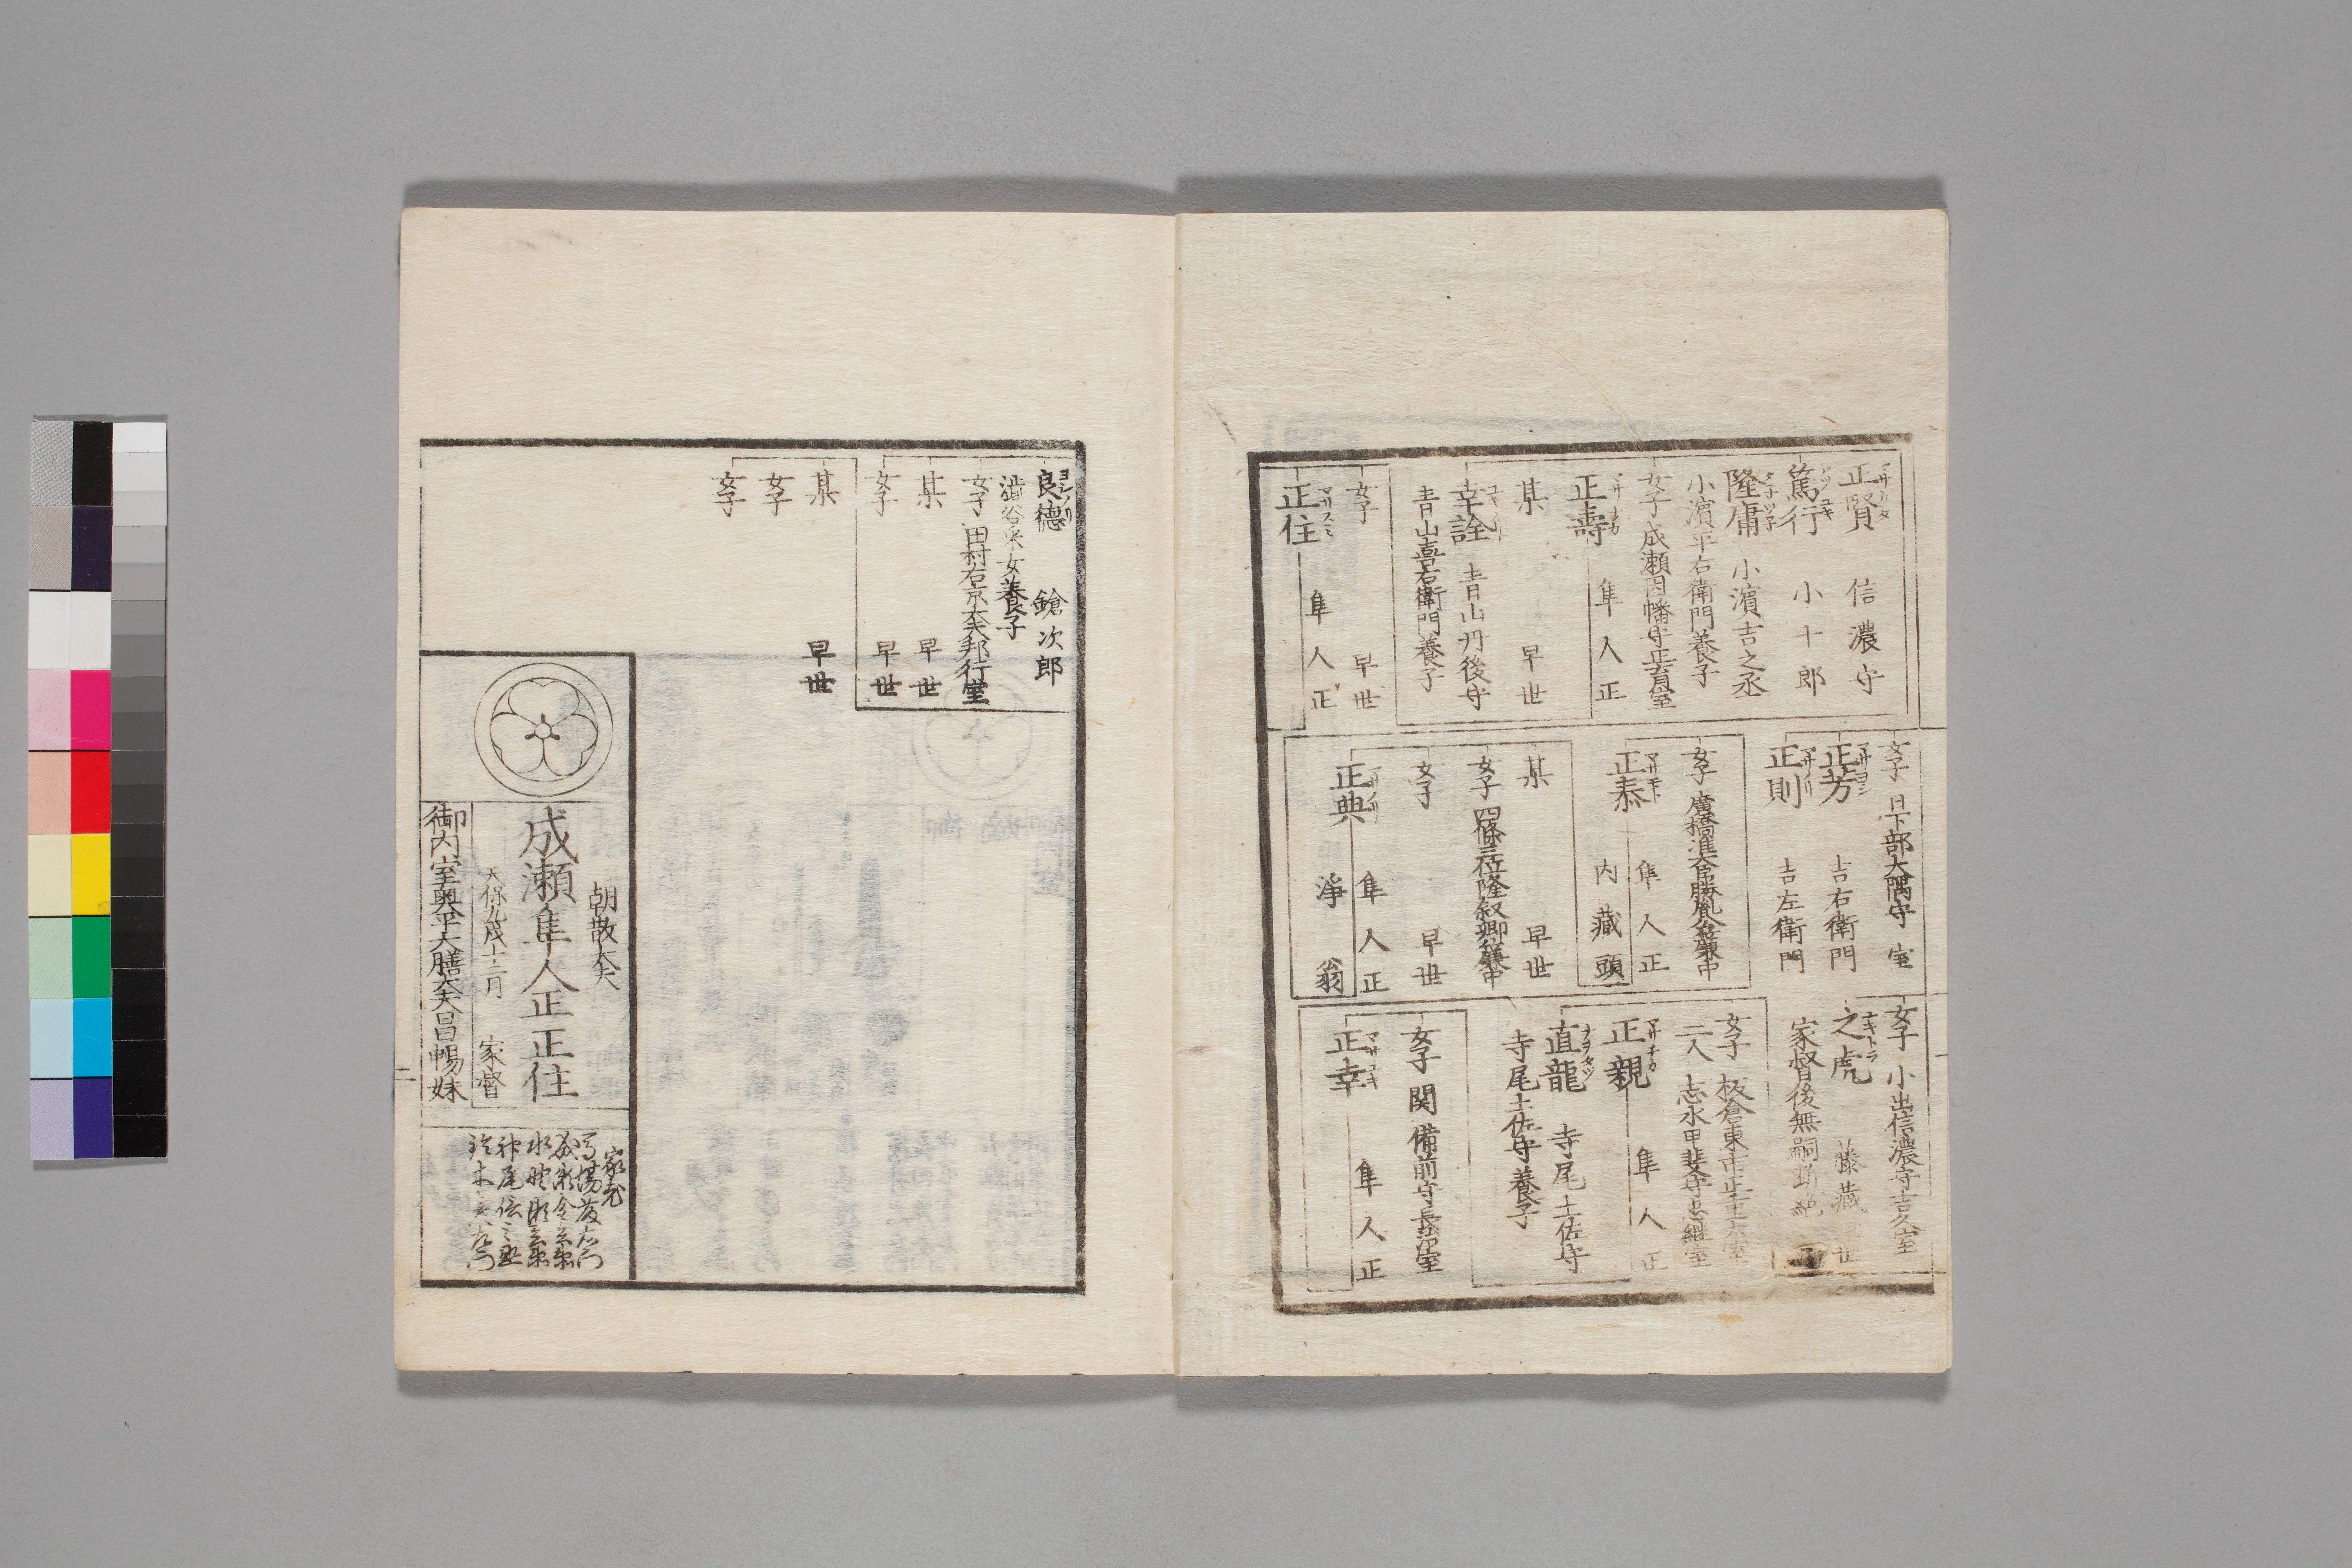 正賢 信濃守
篤行 小十郎
隆庸 小濵吉之丞
小濵平右衛門養子
女子 成瀬因幡守正育室
正壽 隼人正
某 早世
幸詮 青山丹後守
青山喜右衛門養子
女子 早世
正住 隼人正
女子 日下部大隅守室
正芳 吉右衛門
正則 吉左衛門
女子 廣橋准大臣勝胤公簾中
正泰 隼人正
内藏頭
某 早世
女子 四條三位隆叙卿簾中
女子 早世
正典 隼人正
淨翁
女子 小出信濃守吉久室
之虎 藤藏
家督後無嗣断絶
女子 板倉東市正
二人 志水甲斐守忠継室
正親 隼人正
直龍 寺尾土佐守
寺尾土佐守養子
女子 関備前守長治室
正幸 隼人正
良德 鎗次郎
澁谷采女養子
女子 田村右京大夫邦行室
某 早世
女子 早世
某 早世
女子
女子
朝散大夫
成瀬隼人正正住
天保九戌十二月 家督
御内室奥平大膳大夫昌暢妹
家老
神尾
鈴木